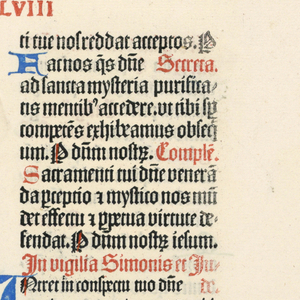 LVIII
ti tue nos reddat acceptos. P
Fac nos q̄s dn̄e Secreta.
ad sancta mysteria purifica-
tis mentib' accedere. ut tibi sp
competēs exhibeamus obseq
um. P dn̄m nostꝝ. Complē.
Sacramenti tui dn̄e venerā
da pceptio ⁊ mystico nos mū
det effectu ⁊ ppetua virtute de-
fendat. P dn̄m nostꝝ iesum.
In vigilia Simonis et Ju-
Ntret in conspectu tuo dn̄e de.